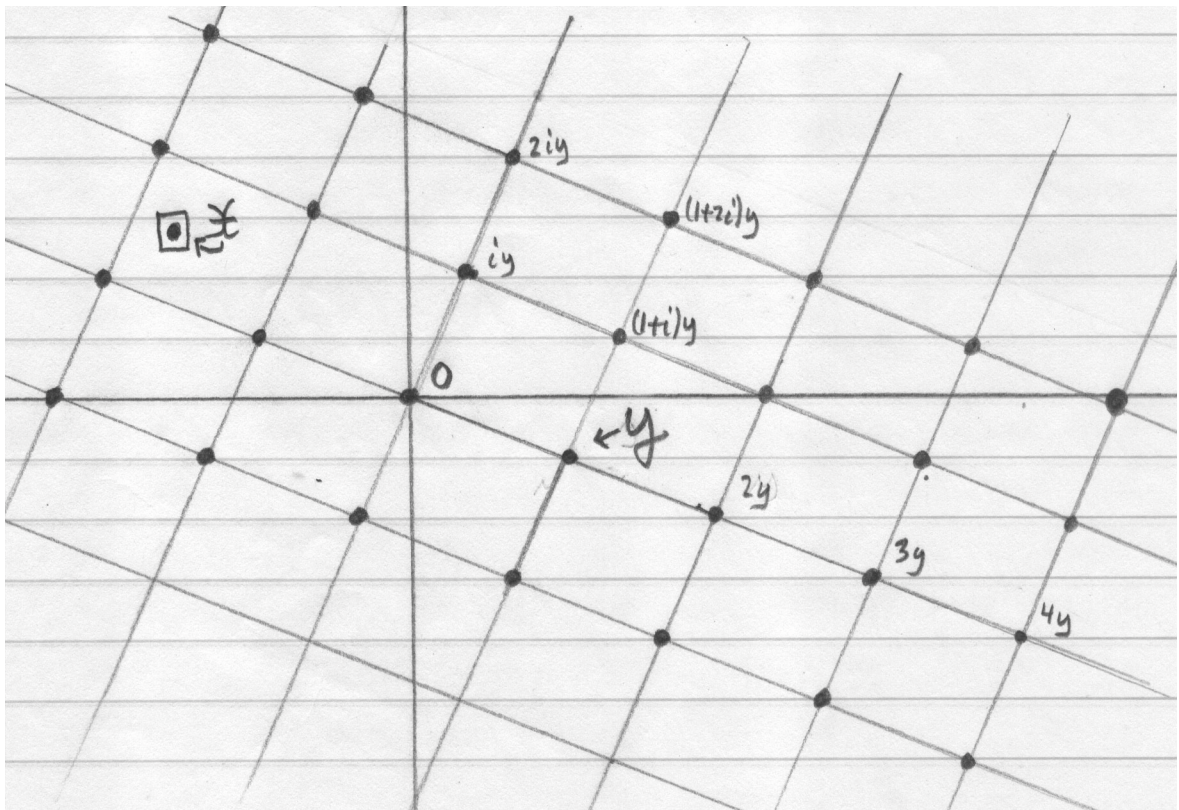 2iy
(1+2i)y
x
iy
(1+i)y
0
y
2y
3y
4y